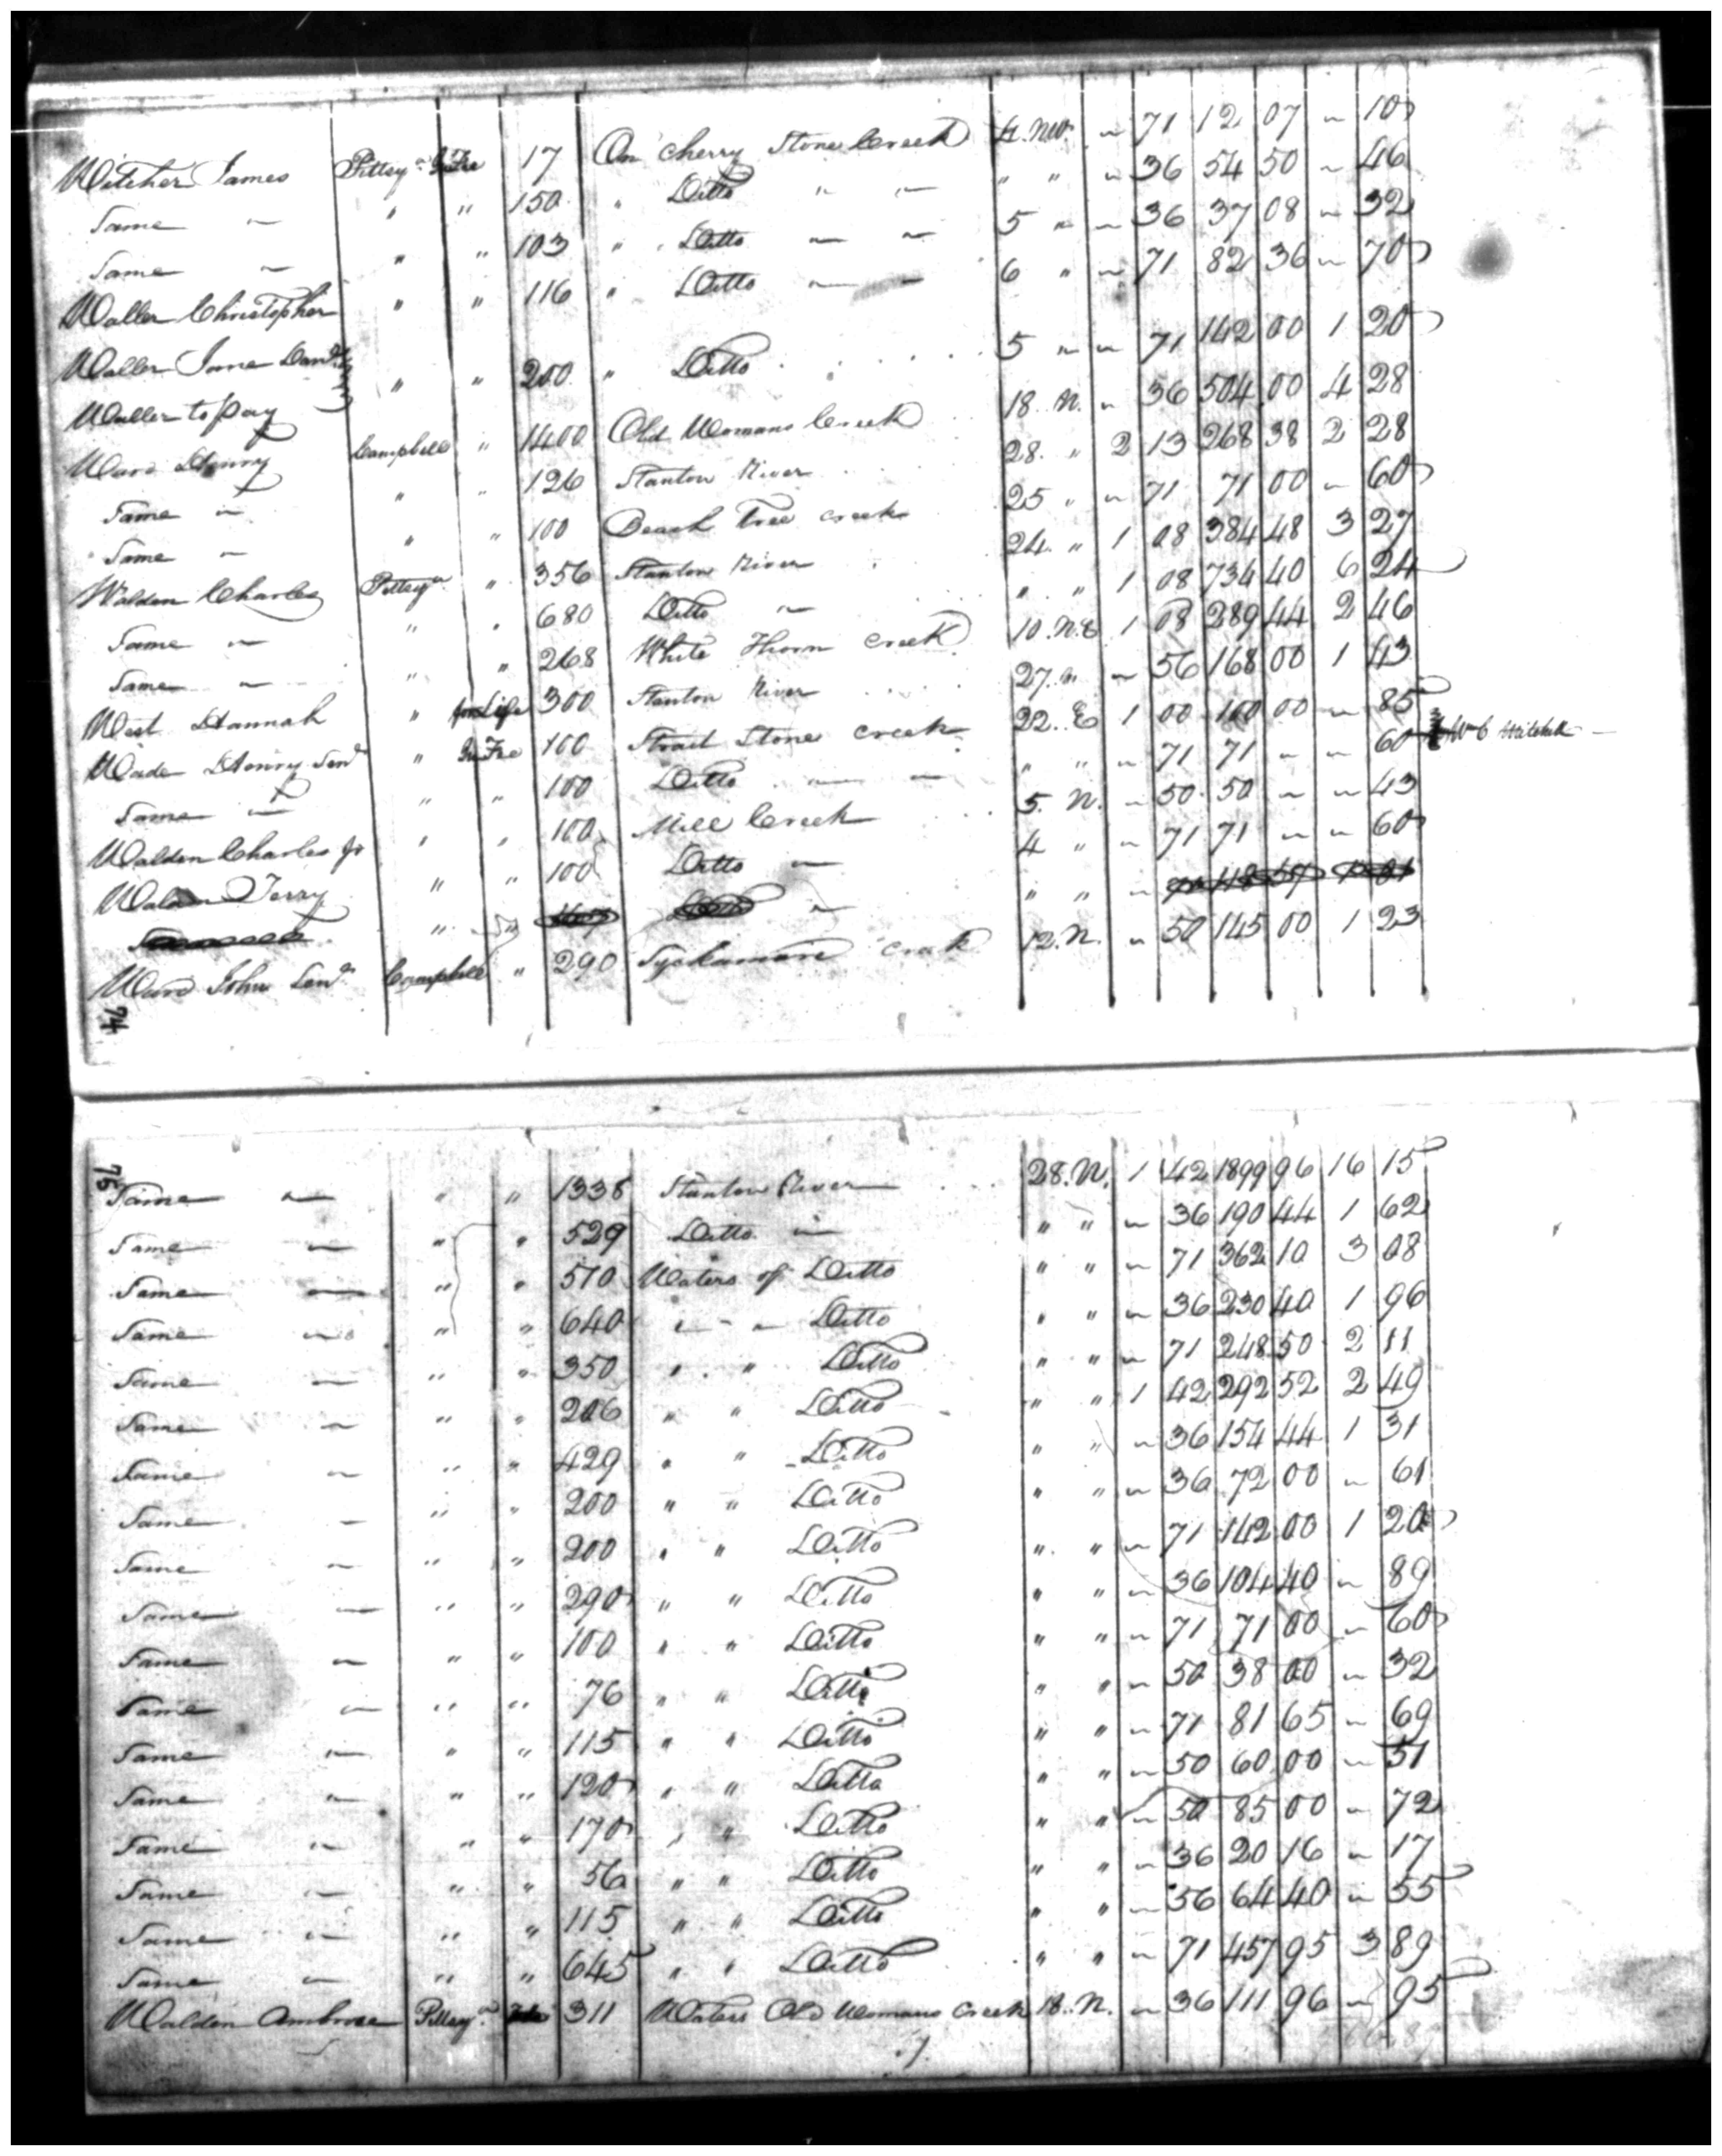 Witcher James Pittsya In Fee 17 On Cherry Stone Creek 4. NW. " 71 12 07 " 10
Same " " " 150 " Ditto " " " " " 36 54 50 " 46
Same " " " 103 " Ditto " " 5 " " 36 37 08 " 32
Waller Christopher " " 116 " Ditto " " 6 " " 71 82 36 " 70
Waller Jane Danl
Waller to pay " " 200 " Ditto 5 " " 71 142 00 1 20
Ward Henry Campbell " 1400 Old Womans Creek 18. N. " 36 504 00 4 28
Same " " " 126 Stanton River 28. " 2 13 268 38 2 28
Same " " " 100 Beach Tree Creek 25 " " 71 71 00 " 60
Walden Charles Pittsya " 356 Stanton River 24. " 1 08 384 48 3 27
Same " " " 680 Ditto " " " 1 08 734 40 6 24
Same " " " 268 White Thorn Creek 10. N.E 1 08 289 44 2 46
West Hannah " for Life 300 Stanton River 27. N. " 56 168 00 1 43
Wade Henry Senr " In Fee 100 Strait Stone Creek 22. E 1 00 100 00 " 85
Same " " " 100 Ditto " " " " " 71 71 " " 60 Wm C Mitchell
Walden Charles Jr " " 100 Mill Creek 5. N. " 50 50 " " 43
Walden Terry " " 100 Ditto " 4 " " 71 71 " " 60
" " " " " "
Ward John Senr Campbell " 290 Syckamore Creek 12. N. " 50 145 00 1 23
74
75
Same " " " 1338 Stanton River 28. N. 1 42 1899 96 16 15
Same " " " 529 Ditto " " " " 36 190 44 1 62
Same " " " 510 Waters of Ditto " " " 71 362 10 3 08
Same " " " 640 " " Ditto " " " 36 230 40 1 96
Same " " " 350 " " Ditto " " " 71 248 50 2 11
Same " " " 206 " " Ditto " " 1 42 292 52 2 49
Same " " " 429 " " Ditto " " " 36 154 44 1 31
Same " " " 200 " " Ditto " " " 36 72 00 " 61
Same " " " 200 " " Ditto " " " 71 142 00 1 20
Same " " " 290 " " Ditto " " " 36 104 40 " 89
Same " " " 100 " " Ditto " " " 71 71 00 " 60
Same " " " 76 " " Ditto " " " 50 38 00 " 32
Same " " " 115 " " Ditto " " " 71 81 65 " 69
Same " " " 120 " " Ditto " " " 50 60 00 " 51
Same " " " 170 " " Ditto " " " 50 85 00 " 72
Same " " " 56 " " Ditto " " " 36 20 16 " 17
Same " " " 115 " " Ditto " " " 56 64 40 " 55
Same " " " 645 " " Ditto " " " 71 457 95 3 89
Walden Ambrose Pittsya 311 Waters Old Womans Creek 18. N. " 36 111 96 " 95